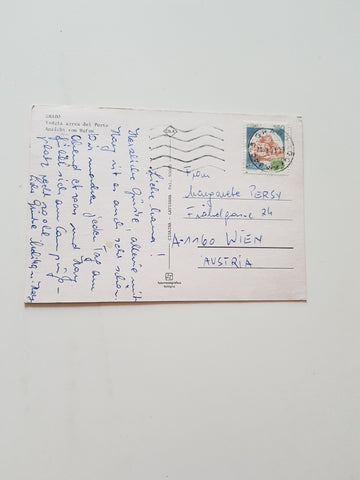 GRADO
Veduta aerea del Porto
Ansicht vom Hafen
Liebe Mama!
Herzliche Grüße, alleine mit
May ist es auch sehr schön.
Wir wandern jeden Tag am
Abend etwas und May
fühlt sich am Camping-
platz sehr wohl.
Liebe Grüße
Frau
Margarete PERSY
24
A-1160 WIEN
AUSTRIA